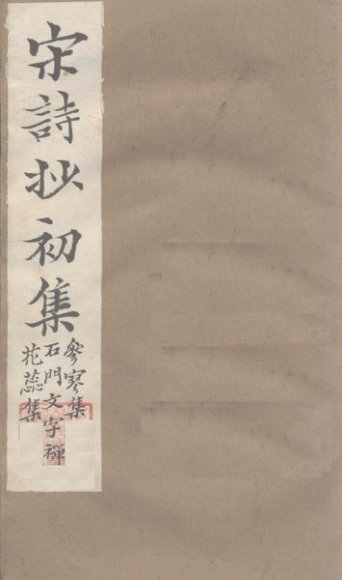 宋詩抄初集
參寥集
石門文字禪
花蕊集